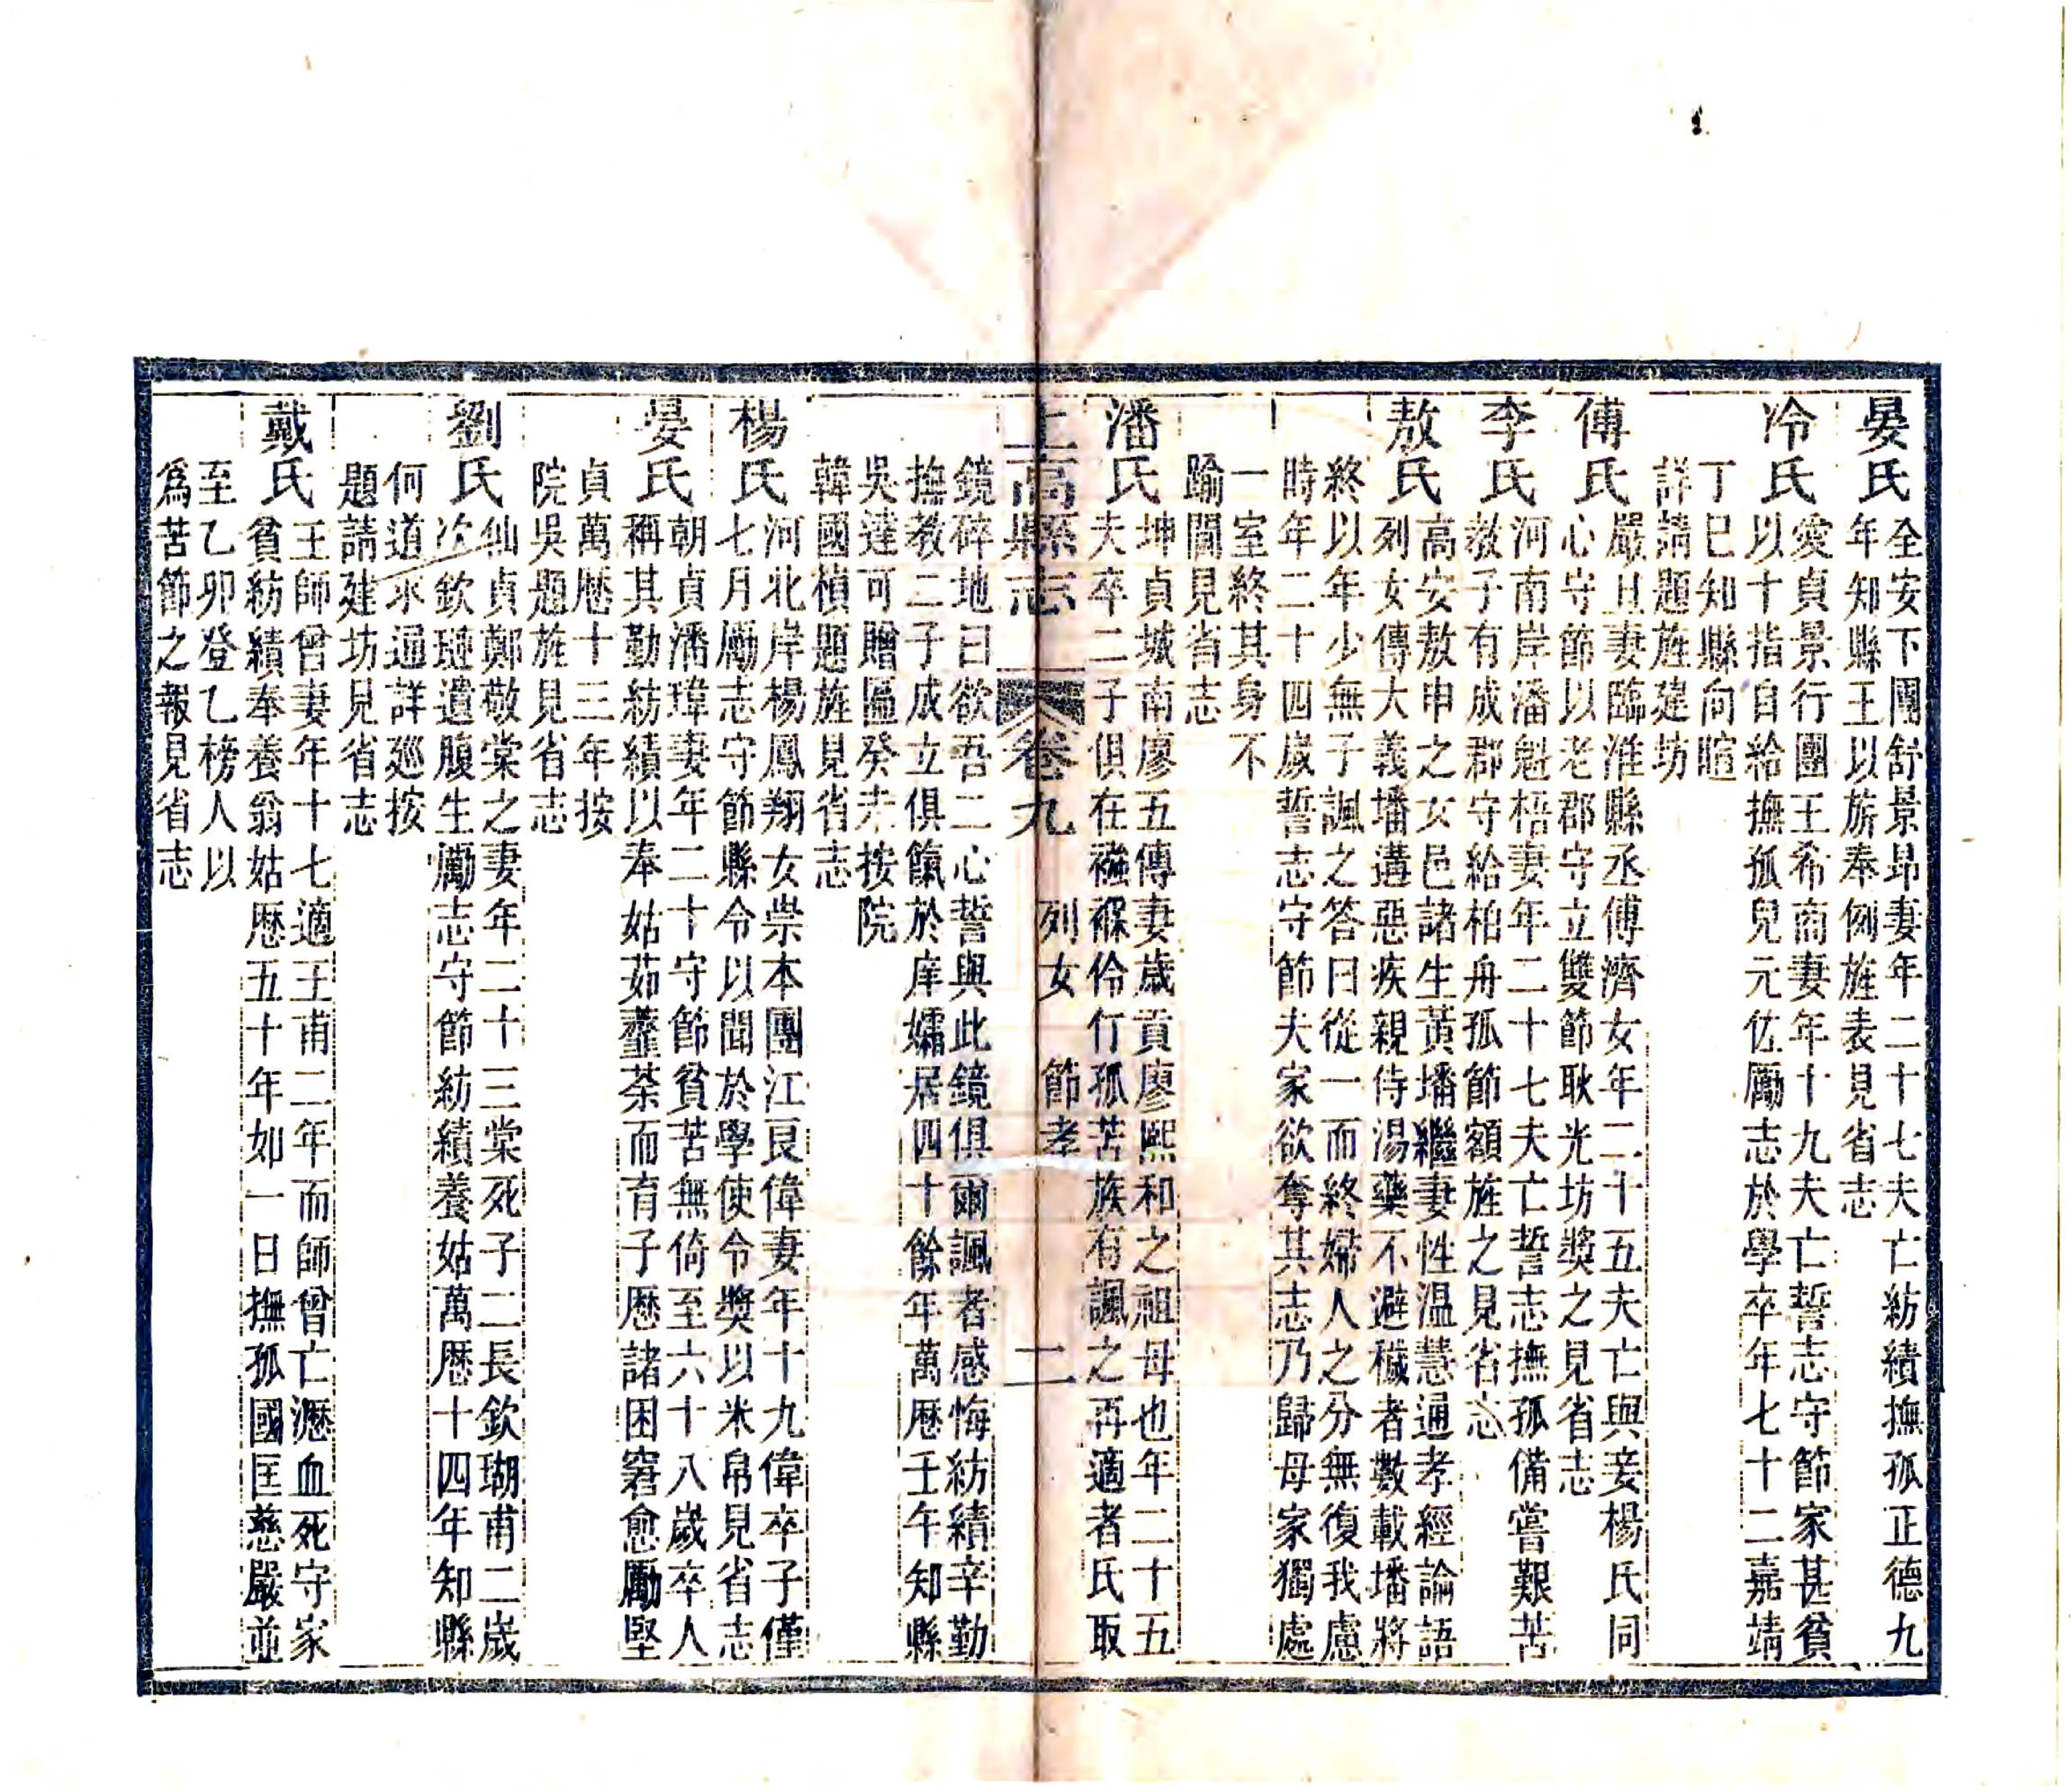 晏氏
全安下團舒景昂妻年二十七夫亡紡績撫孤正德九
年知縣王以旂奉例旌表見省志
冷氏
雯貞景行團王希商妻年十九夫亡誓志守節家甚貧
以十指自給撫孤兒元佐勵志於學卒年七十二嘉靖
丁巳知縣向暄
詳請題旌建坊
傅氏
嚴且妻臨淮縣丞傅濟女年二十五夫亡與妾楊氏同
心守節以老郡守立雙節耿光坊獎之見省志
李氏
河南岸潘魁梧妻年二十七夫亡誓志撫孤備嘗艱苦
教子有成郡守給柏舟孤節額旌之見省志
敖氏
高安敖申之女邑諸生黃墦繼妻性温慧通孝經論語
列女傳大義墦遘惡疾親侍湯藥不避穢者數載墦將
終以年少無子諷之答曰從一而終婦人之分無復我慮
時年二十四歲誓志守節夫家欲奪其志乃歸母家獨處
一室終其身不
踰閫見省志
潘氏
坤貞城南廖五傳妻歲貢廖熙和之祖母也年二十五
夫卒二子俱在襁褓伶仃孤苦族有諷之再適者氏取
上高縣志 卷九 列女 節孝 二
鏡碎地曰欲吾二心誓與此鏡俱爾諷者感悔紡績辛勤
撫教二子成立俱餼於庠孀居四十餘年萬曆壬午知縣
吳達可贈匾癸未按院
韓國楨題旌見省志
楊氏
河北岸楊鳳翔女祟本團江艮偉妻年十九偉卒子僅
七月勵志守節縣令以聞於學使令獎以米帛見省志
晏氏
朝貞潘瑋妻年二十守節貧苦無倚至六十八歲卒人
稱其勤紡績以奉姑茹虀茶而育子歷諸困窘愈勵堅
貞萬曆十三年按
院吳題旌見省志
劉氏
仙貞鄭敬棠之妻年二十三棠死子二長欽瑚甫二歲
次欽璉遺腹生勵志守節紡績養姑萬曆十四年知縣
何道永通詳廵按
題請建坊見省志
戴氏
王師曾妻年十七適王甫二年而師曾亡瀝血死守家
貧紡績奉養翁姑歷五十年如一日撫孤國匡慈嚴並
至乙卯登乙榜人以
爲苦節之報見省志